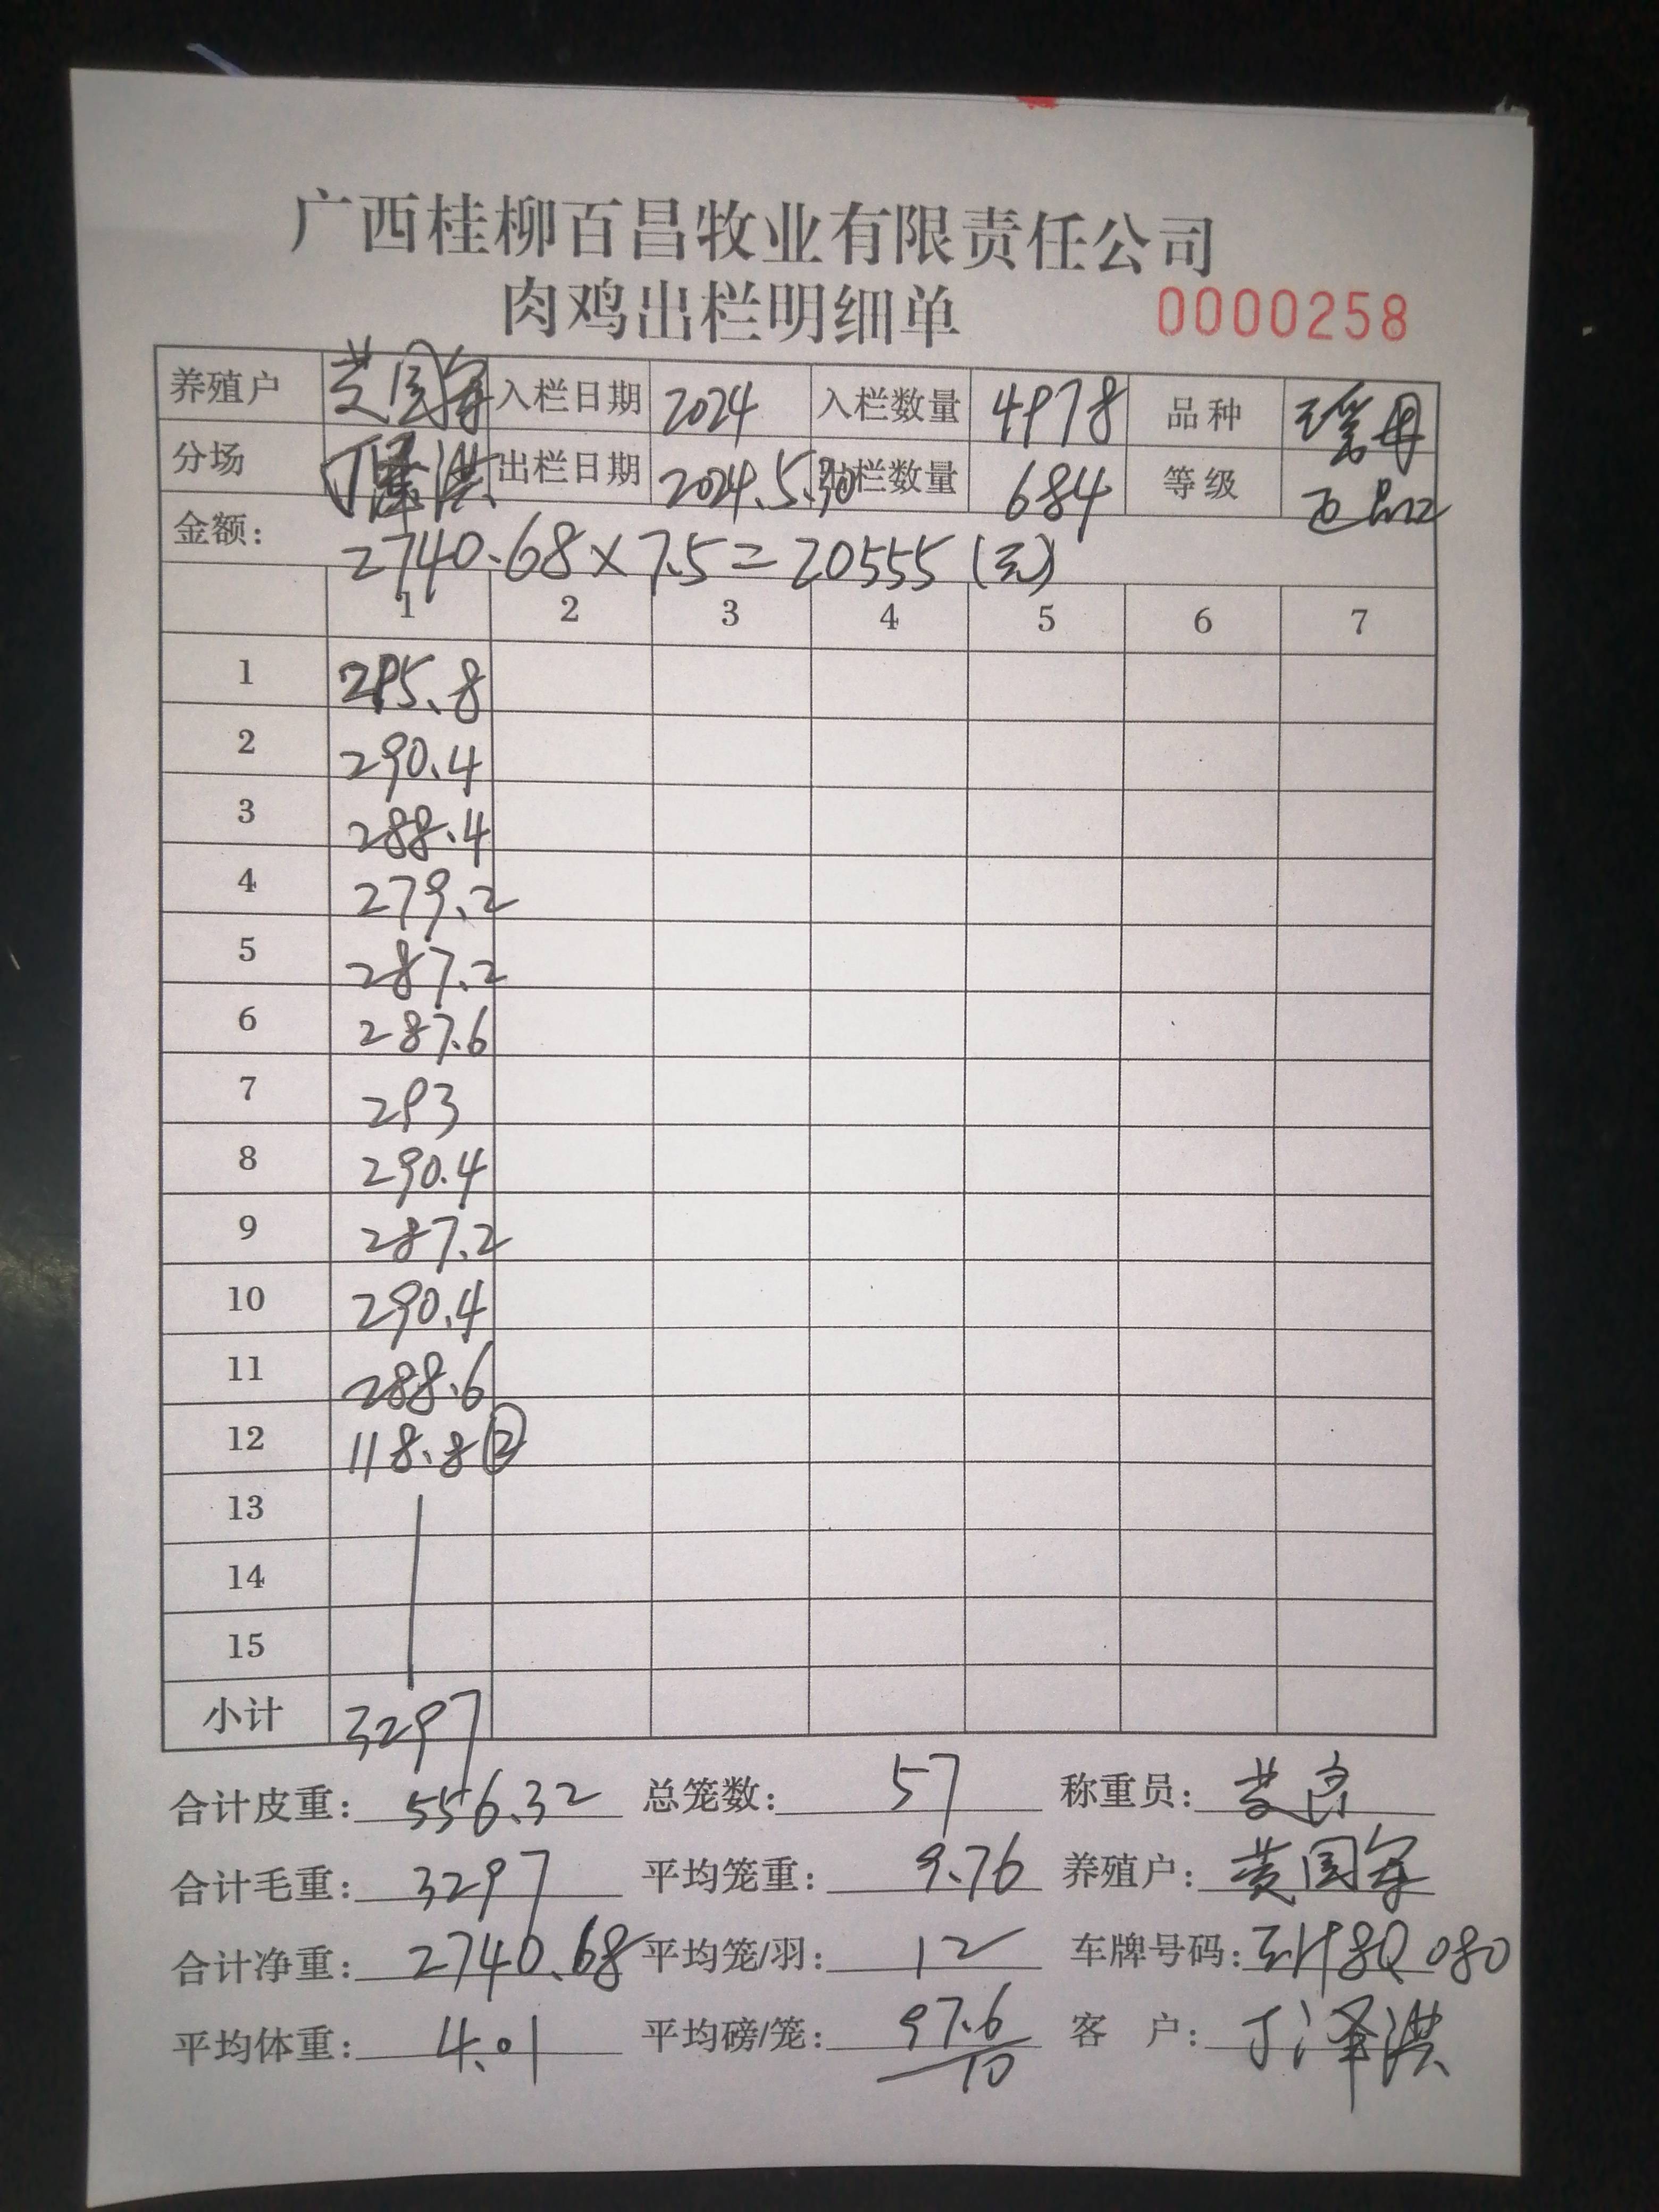 广西桂柳百昌牧业有限责任公司
肉鸡出栏明细单 0000258
养殖户 黄国军 入栏日期 2024 入栏数量 4978 品种 瑶丹
分场 丁泽洪 出栏日期 2024.5.30 出栏数量 684 等级
金额: 2740.68×7.5=20555(元)
1 2 3 4 5 6 7
1 295.8
2 290.4
3 288.4
4 279.2
5 287.2
6 287.6
7 293
8 290.4
9 287.2
10 290.4
11 288.6
12 118.8 ②
13
14
15
小计 3297
合计皮重: 556.32 总笼数: 57 称重员:
合计毛重: 3297 平均笼重: 9.76 养殖户: 黄国军
合计净重: 2740.68 平均笼/羽: 12 车牌号码: 8Q080
平均体重: 4.01 平均磅/笼: 97.6/10 客 户: 丁泽洪